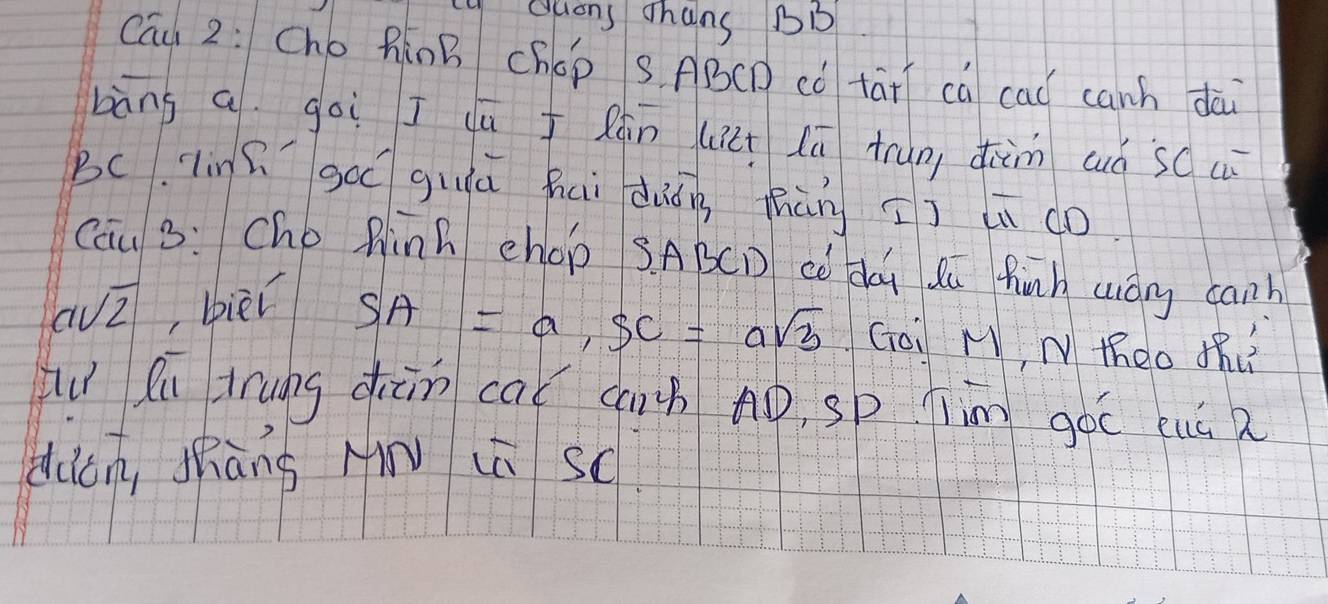 đường thẳng BB
Câu 2: Cho hình chóp S.ABCD có tất cả các cạnh đều
bằng a. gọi I và J lần lượt là trung điểm của SC và
BC. Tính góc giữa hai đường thẳng IJ và CD.
Câu 3: Cho hình chóp S.ABCD có đáy là hình vuông cạnh
a√2, biết SA = a, SC = a√3. Gọi M, N theo thứ
tự là trung điểm các cạnh AD, SD. Tìm góc của 2
đường thẳng MN và SC.